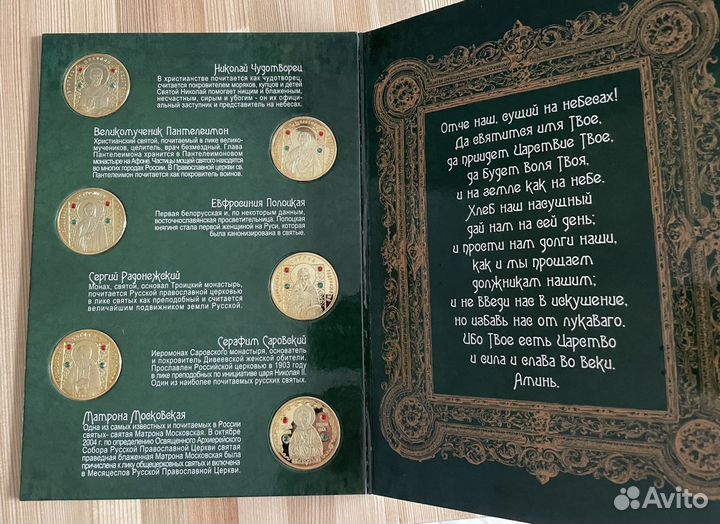 Николай Чудотворец
В христианстве почитается как чудотворец,
считается покровителем моряков, купцов и детей
Святой Николай помогает нищим и блаженным,
несчастным, сирым и убогим - он их офици-
альный заступник и представитель на небесах.
Великомученик Пантелеимон
Христианский святой, почитаемый в лике велико-
мучеников, целитель, врач безмездный. Глава
Пантелеимона хранится в Пантелеимоновом
монастыре на Афоне. Частицы мощей святого находятся
во многих городах России. В Православной церкви св.
Пантелеимон почитается как покровитель воинов.
Евфровиния Полоцкая
Первая белорусская и, по некоторым данным,
восточнославянская просветительница. Полоцкая
княгиня стала первой женщиной на Руси, которая
была канонизирована в святые.
Сергий Радонежский
Монах, святой, основал Троицкий монастырь,
почитается Русской православной церковью
в лике святых как преподобный и считается
величайшим подвижником земли Русской.
Серафим Саровский
Иеромонах Саровского монастыря, основатель
и покровитель Дивеевской женской обители.
Прославлен Российской церковью в 1903 году
в лике преподобных по инициативе царя Николая II.
Один из наиболее почитаемых русских святых.
Матрона Московская
Одна из самых известных и почитаемых в России
святых- святая Матрона Московская. В октябре
2004 г. по определению Освященного Архиерейского
Собора Русской Православной Церкви святая
праведная блаженная Матрона Московская была
причислена к лику общецерковных святых и включена
в Месяцеслов Русской Православной Церкви.
Отче наш, сущий на небесах!
Да святится имя Твое,
да приидет Царствие Твое,
да будет воля Твоя,
и на земле как на небе.
Хлеб наш насущный
дай нам на сей день;
и прости нам долги наши,
как и мы прощаем
должникам нашим;
и не введи нас в искушение,
но избавь нас от лукаваго.
Ибо Твое есть Царство
и сила и слава во веки.
Аминь.
Avito